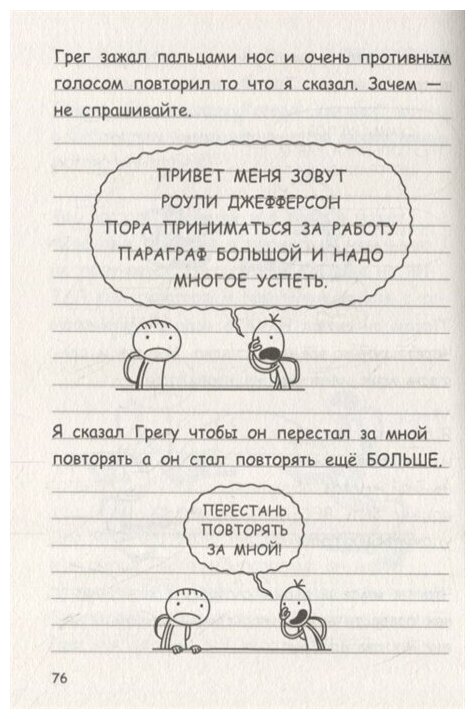 Грег зажал пальцами нос и очень противным
голосом повторил то что я сказал. Зачем —
не спрашивайте.
ПРИВЕТ МЕНЯ ЗОВУТ
РОУЛИ ДЖЕФФЕРСОН
ПОРА ПРИНИМАТЬСЯ ЗА РАБОТУ
ПАРАГРАФ БОЛЬШОЙ И НАДО
МНОГОЕ УСПЕТЬ.
Я сказал Грегу чтобы он перестал за мной
повторять а он стал повторять ещё БОЛЬШЕ.
ПЕРЕСТАНЬ
ПОВТОРЯТЬ
ЗА МНОЙ!
76